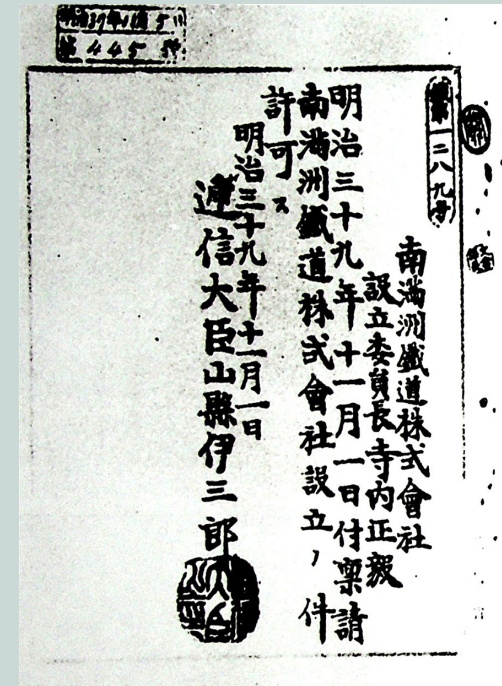 第445号
第一二八九号
南滿洲鐵道株式會社
設立委員長寺内正毅
明治三十九年十一月一日付稟請
南滿洲鐵道株式會社設立ノ件
許可ス
明治三十九年十一月一日
遞信大臣山縣伊三郎